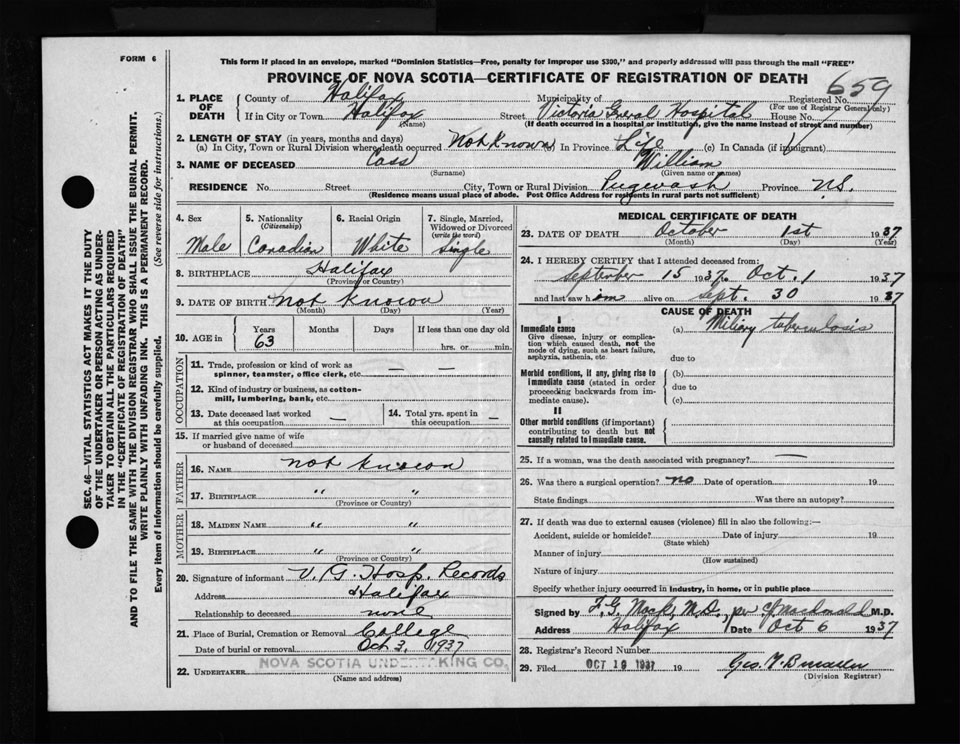 FORM 6
This form if placed in an envelope, marked "Dominion Statistics—Free, penalty for improper use $300," and properly addressed will pass through the mail "FREE"
PROVINCE OF NOVA SCOTIA—CERTIFICATE OF REGISTRATION OF DEATH
659
1. PLACE OF DEATH County of Halifax Municipality of Registered No.
(For use of Registrar General only)
If in City or Town Halifax Street Victoria General Hospital House No.
(Name) (If death occurred in a hospital or institution, give the name instead of street and number)
2. LENGTH OF STAY (in years, months and days)
(a) In City, Town or Rural Division where death occurred Not Known (b) In Province Life (c) In Canada (if immigrant)
3. NAME OF DECEASED Cass William
(Surname) (Given name or names)
RESIDENCE No. Street City, Town or Rural Division Pugwash Province N.S.
(Residence means usual place of abode. Post Office Address for residents in rural parts not sufficient)
4. Sex 5. Nationality (Citizenship) 6. Racial Origin 7. Single, Married, Widowed or Divorced (write the word)
Male Canadian White Single
8. BIRTHPLACE Halifax
(Province or Country)
9. DATE OF BIRTH not known
(Month) (Day) (Year)
10. AGE in Years Months Days If less than one day old
63 hrs. or min.
OCCUPATION
11. Trade, profession or kind of work as spinner, teamster, office clerk, etc. — —
12. Kind of industry or business, as cotton-mill, lumbering, bank, etc.
13. Date deceased last worked at this occupation — 14. Total yrs. spent in this occupation —
15. If married give name of wife or husband of deceased
FATHER
16. NAME not known
17. BIRTHPLACE " "
(Province or Country)
MOTHER
18. MAIDEN NAME " "
19. BIRTHPLACE " "
(Province or Country)
20. Signature of informant V. G. Hosp. Records
Address Halifax
Relationship to deceased none
21. Place of Burial, Cremation or Removal College
Date of burial or removal Oct 3, 1937
22. UNDERTAKER NOVA SCOTIA UNDERTAKING CO.
(Name and address)
MEDICAL CERTIFICATE OF DEATH
23. DATE OF DEATH October 1st 1937
(Month) (Day) (Year)
24. I HEREBY CERTIFY that I attended deceased from:
September 15 1937 Oct. 1 1937
and last saw him alive on Sept. 30 1937
CAUSE OF DEATH
I
Immediate cause (a) Miliary tuberculosis
Give disease, injury or complication which caused death, not the mode of dying, such as heart failure, asphyxia, asthenia, etc.
due to
Morbid conditions, if any, giving rise to immediate cause (stated in order proceeding backwards from immediate cause). (b)
due to
(c)
II
Other morbid conditions (if important) contributing to death but not causally related to immediate cause.
25. If a woman, was the death associated with pregnancy? —
26. Was there a surgical operation? no Date of operation 19
State findings Was there an autopsy?
27. If death was due to external causes (violence) fill in also the following:—
Accident, suicide or homicide? Date of injury 19
(State which)
Manner of injury
(How sustained)
Nature of injury
Specify whether injury occurred in industry, in home, or in public place
Signed by F. G. Mack, M.D., per C. J. Macdonald M.D.
Address Halifax Date Oct 6 1937
28. Registrar's Record Number
29. Filed OCT 19 1937 19
(Division Registrar)
SEC. 46—VITAL STATISTICS ACT MAKES IT THE DUTY
OF THE UNDERTAKER OR PERSON ACTING AS UNDER-
TAKER TO OBTAIN ALL THE PARTICULARS REQUIRED
IN THE "CERTIFICATE OF REGISTRATION OF DEATH"
AND TO FILE THE SAME WITH THE DIVISION REGISTRAR WHO SHALL ISSUE THE BURIAL PERMIT.
WRITE PLAINLY WITH UNFADING INK. THIS IS A PERMANENT RECORD.
Every item of information should be carefully supplied. (See reverse side for instructions.)